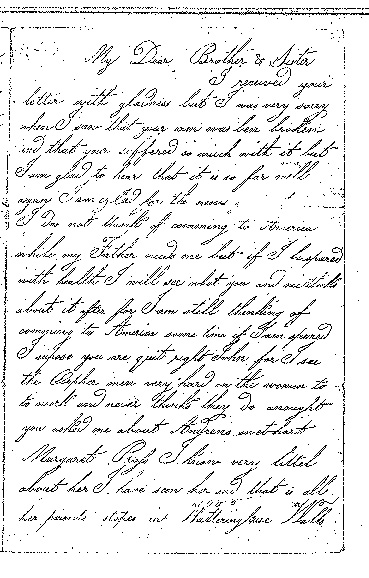 My Dear Brother & Sister
I received your
letter with gladness but I was very sorry
when I saw that your arm was been broken
and that you suffered so much with it but
I am glad to hear that it is so far well
again I am glad for the news
I Do not think of comming to America
while my Father needs me but if I be spared
with health I will see what you and me thinks
about it after for I am still thinking of
comming to America some time if I am spared
I supose you are quit right John for I see
the men very hard on the women to
to work and never thinks they do enought
you asked me about Andrens sweet hart
Margaret Ross I know very littel
about her I have seen her and that is all
her parents stopes in